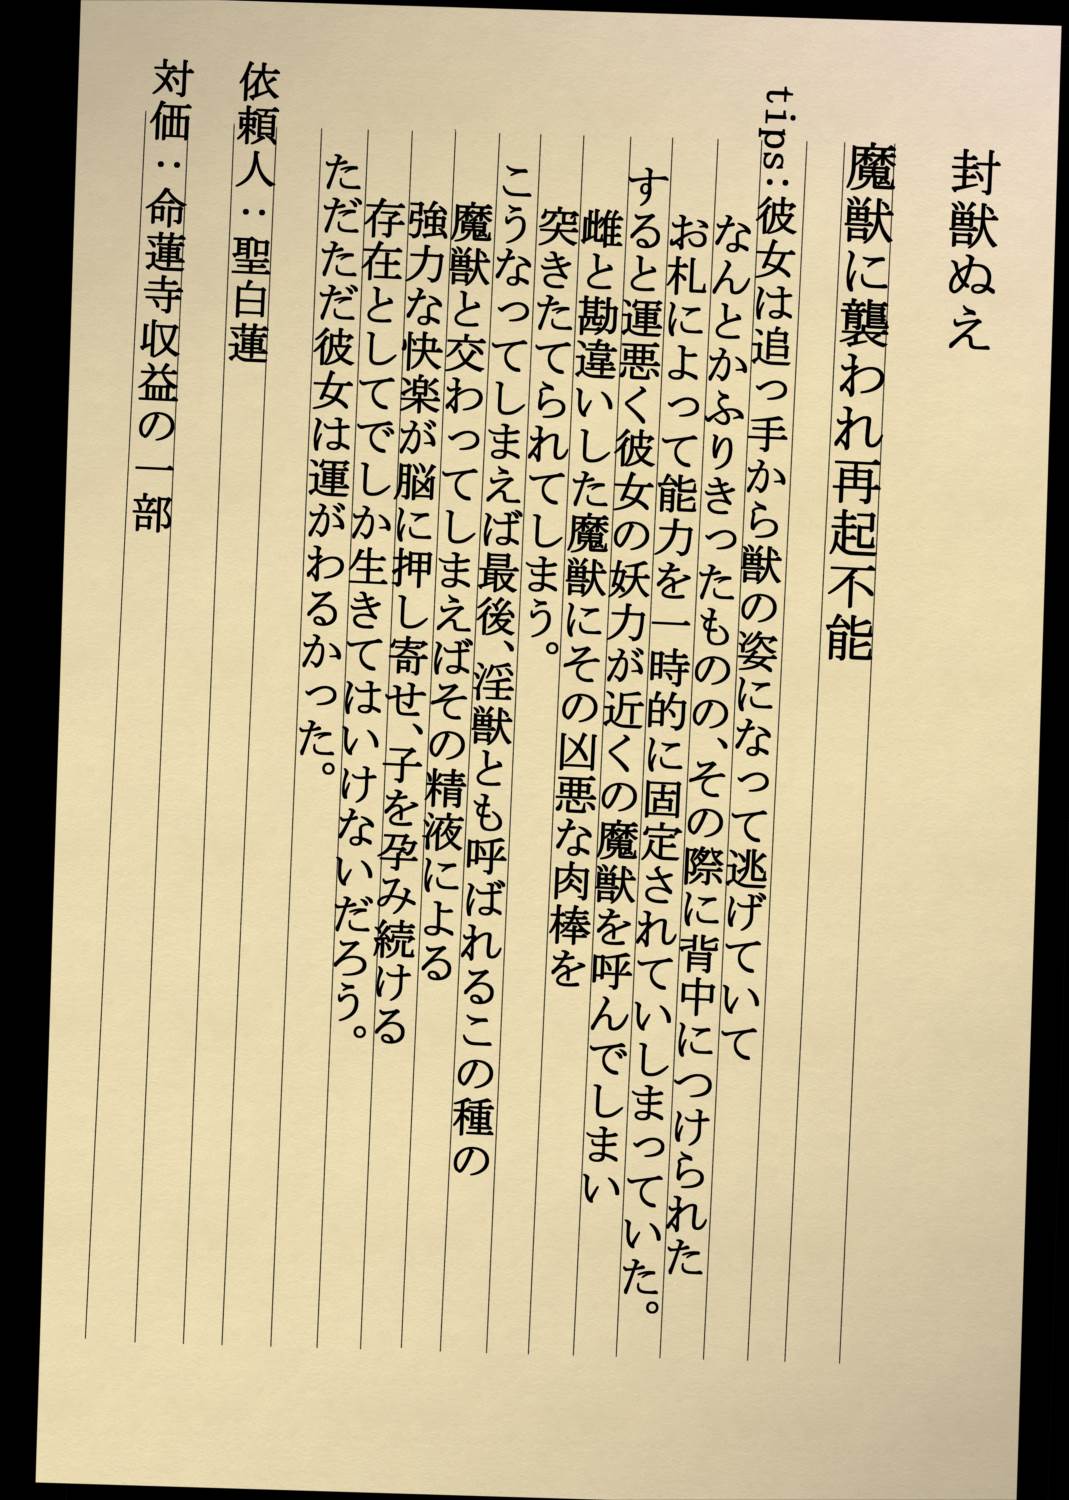 封獣ぬえ
魔獣に襲われ再起不能
tips:彼女は追っ手から獣の姿になって逃げていて
なんとかふりきったものの、その際に背中につけられた
お札によって能力を一時的に固定されていしまっていた。
すると運悪く彼女の妖力が近くの魔獣を呼んでしまい
雌と勘違いした魔獣にその凶悪な肉棒を
突きたてられてしまう。
こうなってしまえば最後、淫獣とも呼ばれるこの種の
魔獣と交わってしまえばその精液による
強力な快楽が脳に押し寄せ、子を孕み続ける
存在としてでしか生きてはいけないだろう。
ただただ彼女は運がわるかった。
依頼人：聖白蓮
対価：命蓮寺収益の一部